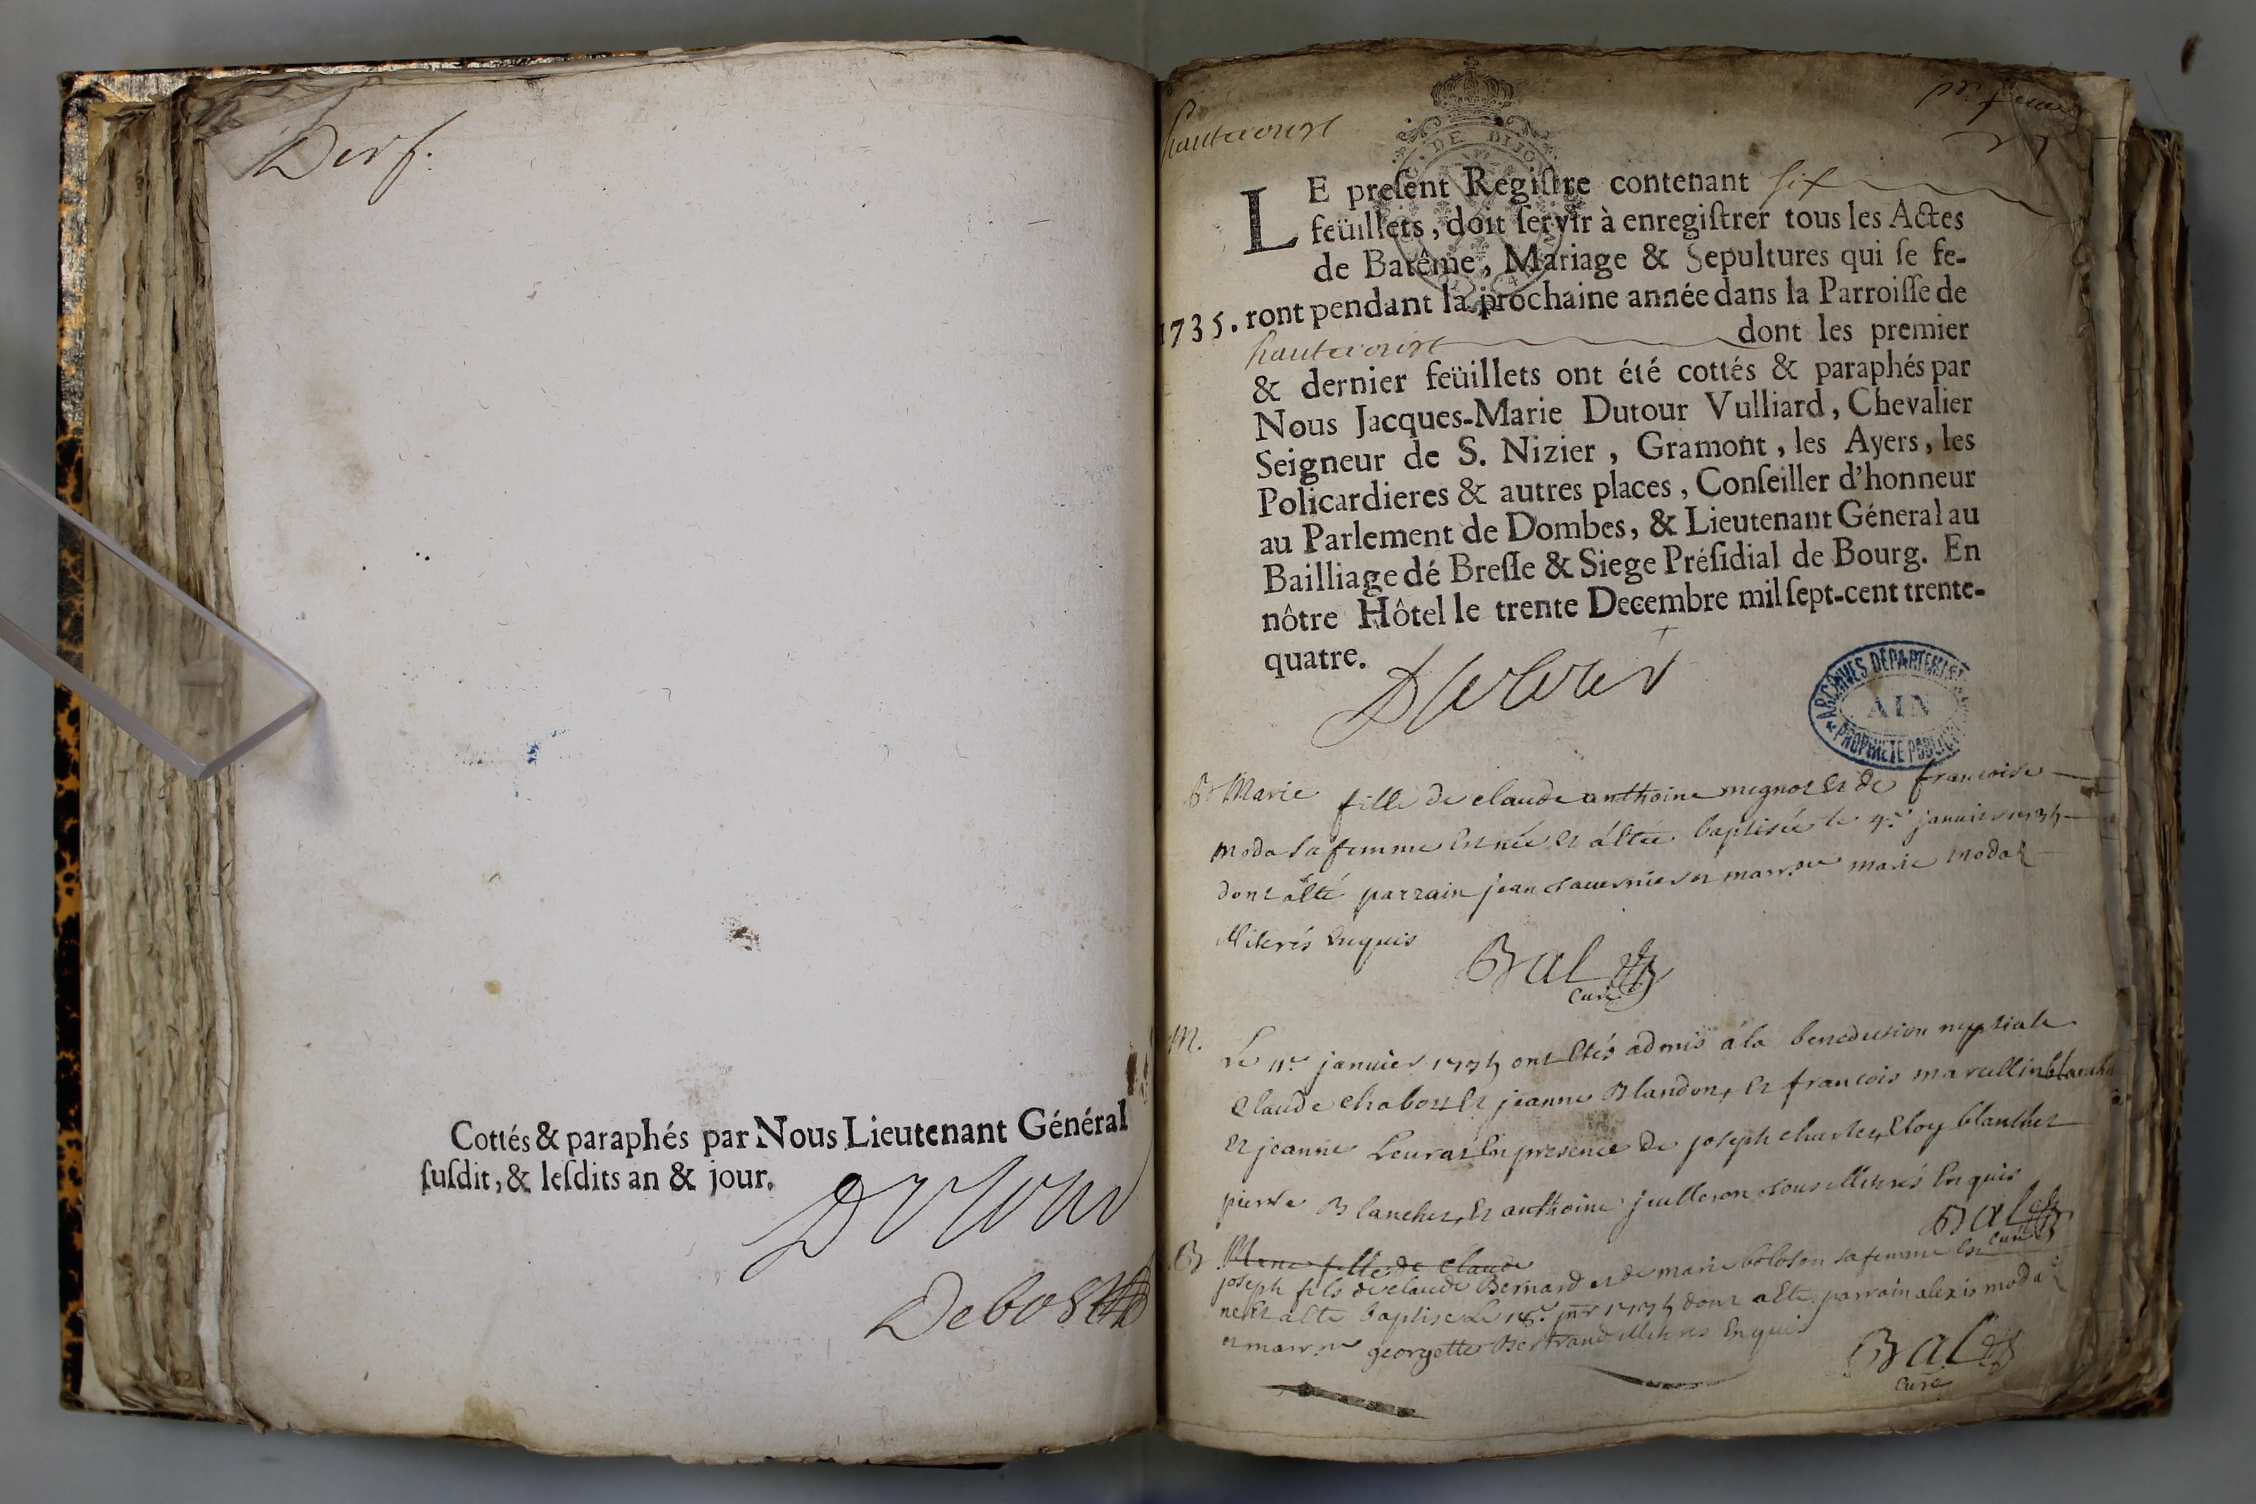 Derf.
Cottés & paraphés par Nous Lieutenant Général
ſuſdit, & leſdits an & jour.
hautecourt
DE DIJON
LE preſent Regiſtre contenant six
feüillets, doit ſervir à enregiſtrer tous les Actes
de Batême, Mariage & Sepultures qui ſe fe-
1735. ront pendant la prochaine année dans la Parroiſſe de
hautecourt dont les premier
& dernier feüillets ont été cottés & paraphés par
Nous Jacques-Marie Dutour Vulliard, Chevalier
Seigneur de S. Nizier, Gramont, les Ayers, les
Policardieres & autres places, Conſeiller d'honneur
au Parlement de Dombes, & Lieutenant Géneral au
Bailliage dé Breſſe & Siege Préſidial de Bourg. En
nôtre Hôtel le trente Decembre mil ſept-cent trente-
quatre.
ARCHIVES DEPARTEMENT
AIN
PROPRIETE PUBLIQUE
Bt Marie fille de claude anthoine mignot et de francoise
moda sa femme est née et a étée baptisée le 4e janvier 1735
dont a été parrain jean et marr.ne marie moda
illiterés enquis
Bal
Curé
M.
Le 11e janvier 1735 ont étés admis á la benediction nuptiale
Claude chabout et jeanne Blandon, et francois marcellin
et jeanne en presence de joseph Eloy blanchet
pierre Blanchet, et anthoine juilleron tous illiterés enquis
Bal
Curé
B Marie fille de Claude
joseph fils de claude Bernard et de marie boloson sa femme est
né et a été baptisé le jnr 1735 dont a été parrain alexis moda
et marr.ne georgette Bertrand illiteres enquis
Bal
Curé